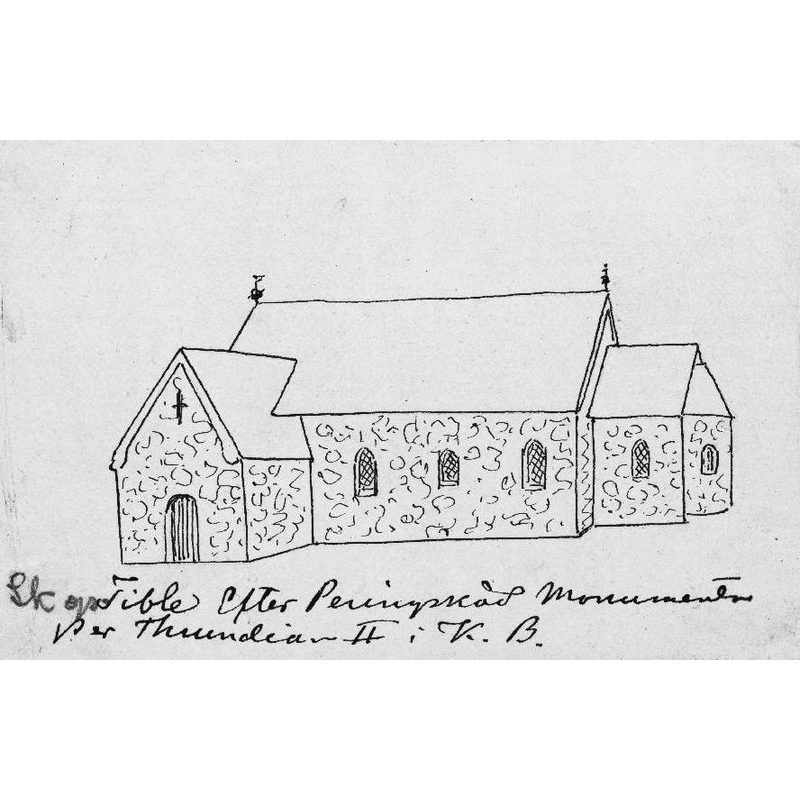 Skogs Tible Efter Peringskåd Monumenta
per Thiundian II i K. B.